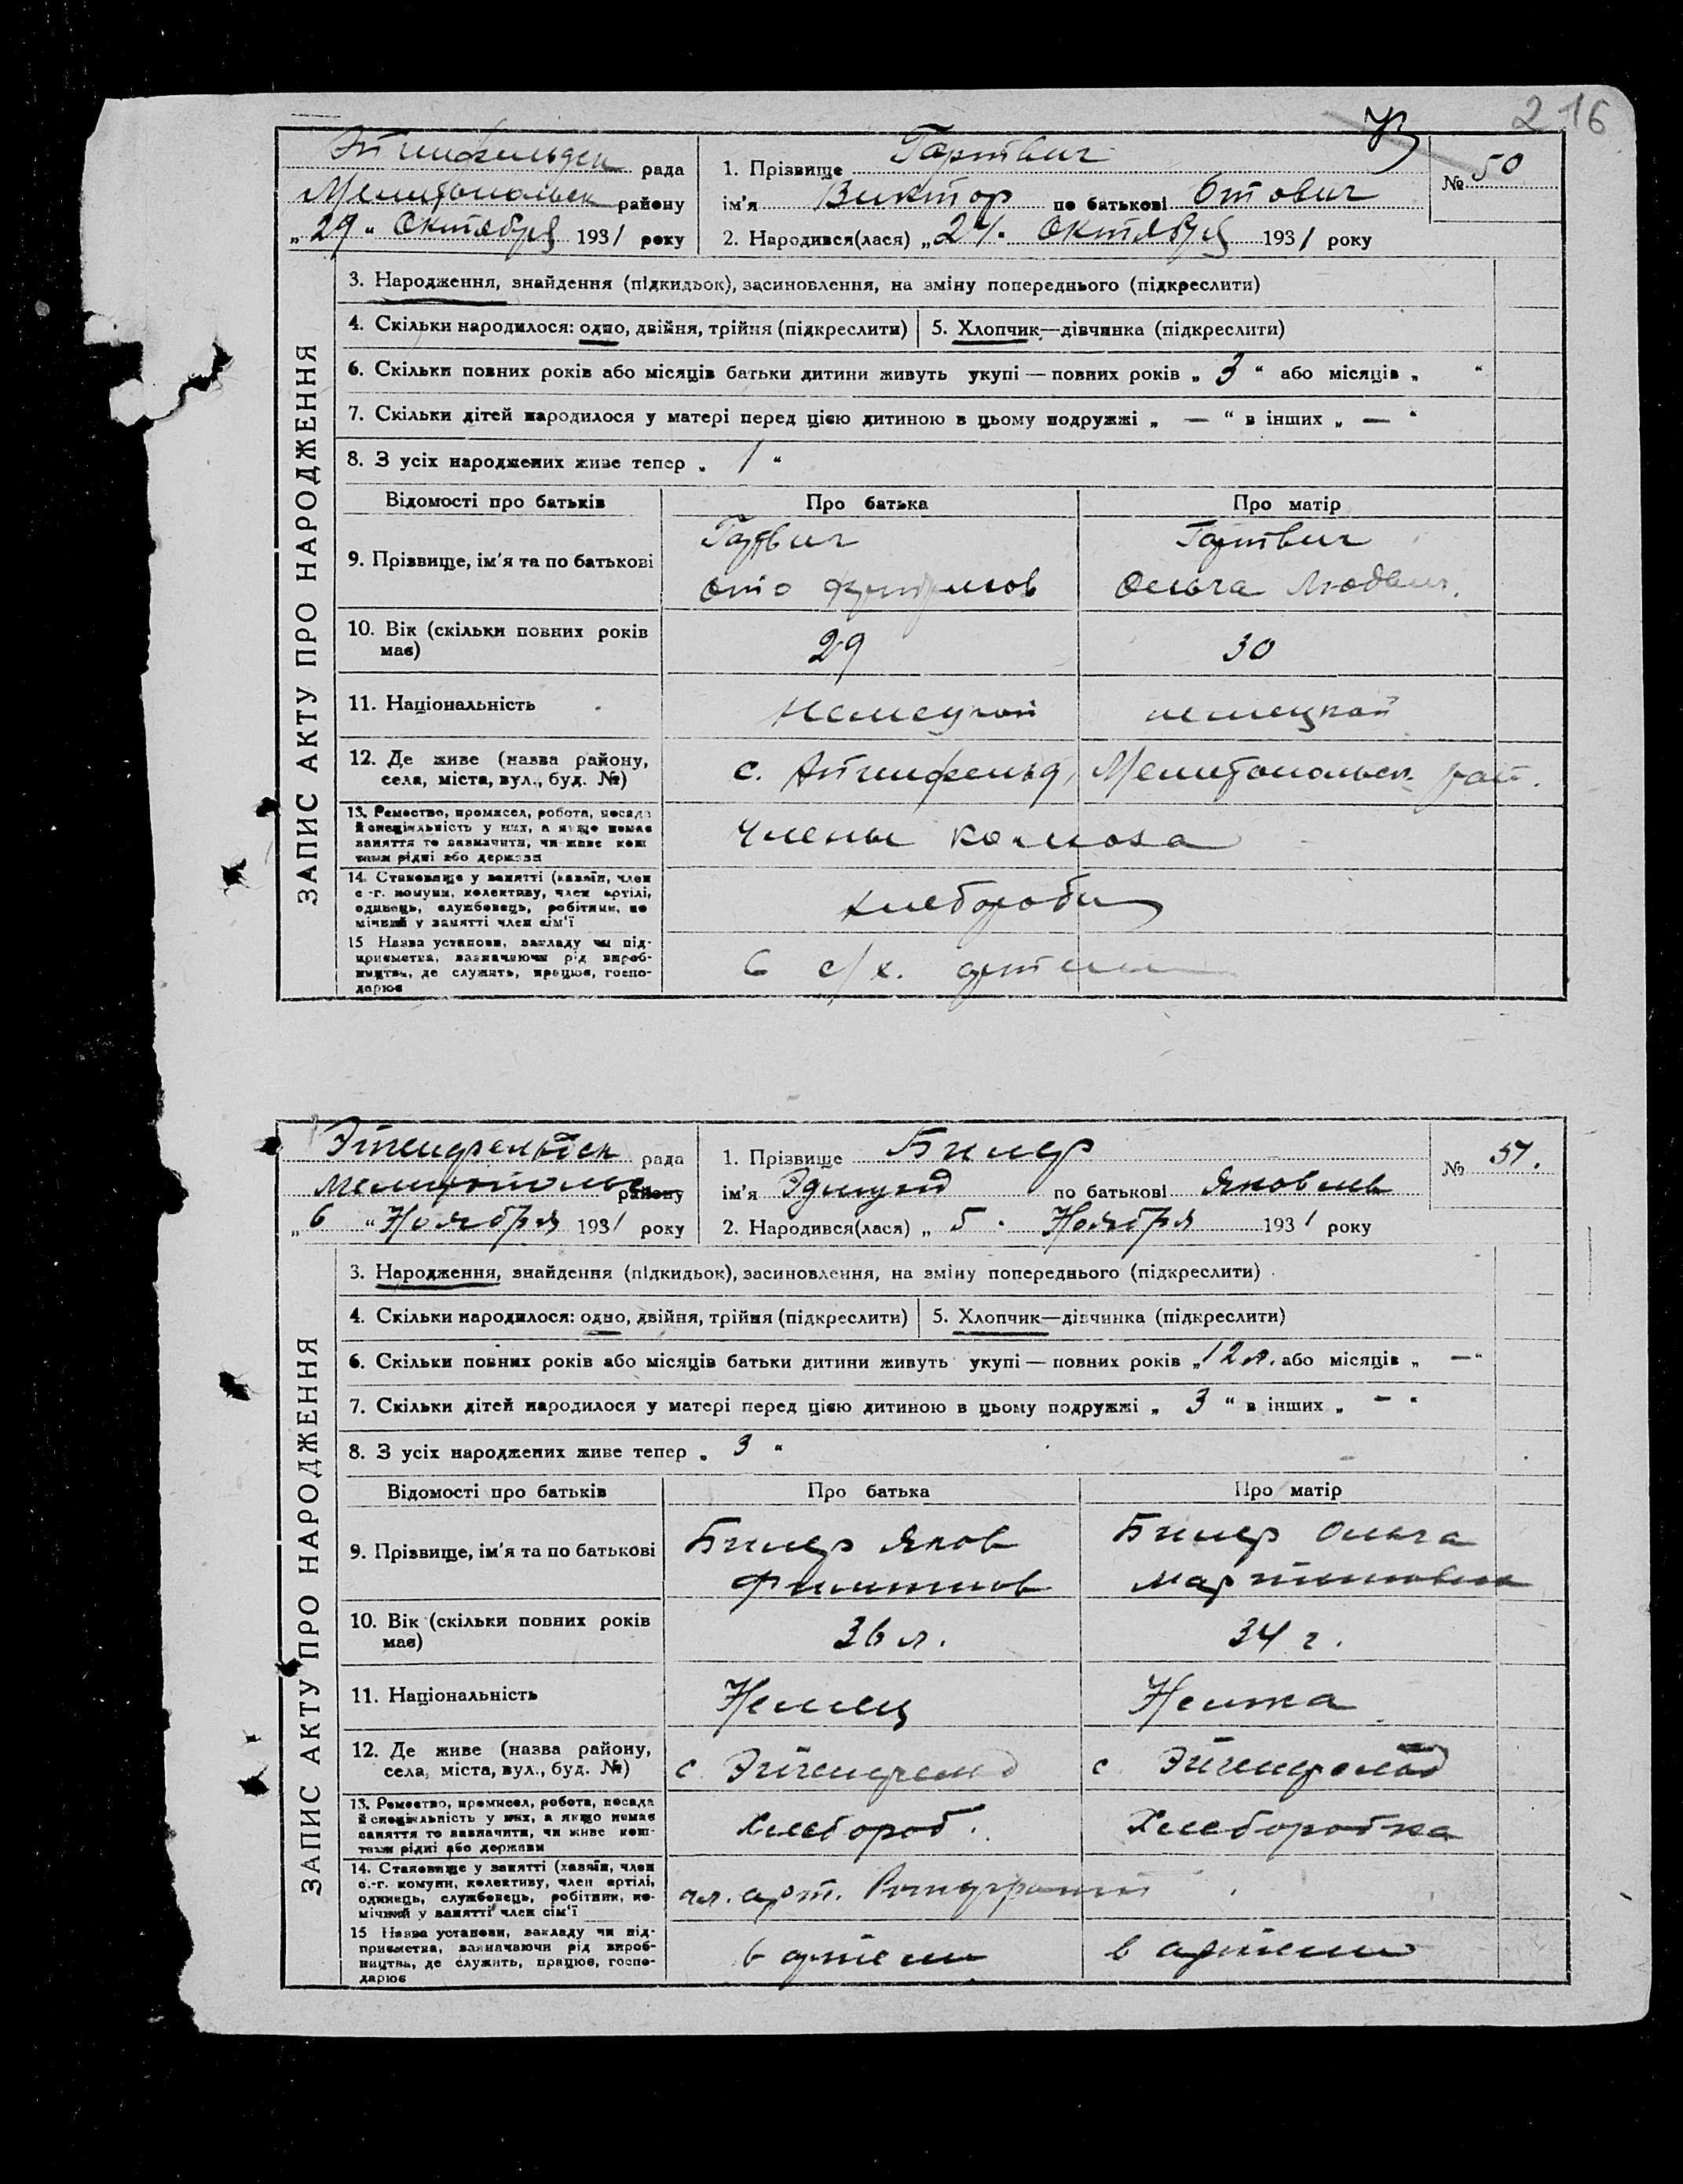 216
Гартвиг
рада
1. Прізвище
№ 50
Мелитопольск району
ім'я Виктор по батькові Отович
„29“ Октября 1931 року
2. Народився(лася) „24. Октября 1931 року
ЗАПИС АКТУ ПРО НАРОДЖЕННЯ
3. Народження, знайдення (підкидьок), засиновлення, на зміну попереднього (підкреслити)
4. Скільки народилося: одно, двійня, трійня (підкреслити)
5. Хлопчик—дівчинка (підкреслити)
6. Скільки повних років або місяців батьки дитини живуть укупі — повних років „ 3 “ або місяців „ “
7. Скільки дітей народилося у матері перед цією дитиною в цьому подружжі „ — “ в інших „ — “
8. З усіх народжених живе тепер „ 1 “
Відомості про батьків
Про батька
Про матір
9. Прізвище, ім'я та по батькові
Гартвиг
Гартвиг
Ото
Ольга Людвиг.
10. Вік (скільки повних років
має)
29
30
11. Національність
немецкой
немецкой
12. Де живе (назва району,
села, міста, вул., буд. №)
с. Мелитопольск. рай.
13. Ремество, промисел, робота, посада
й спеціяльність у них, а якщо немає
заняття то зазначити, чи живе кош
тами рідні або держави
члены колхоза
14. Становище у занятті (хазяїн, член
с.-г. комуни, колективу, член артілі,
одинець, службовець, робітник, по
мічний у занятті член сім'ї
хлебороби
15 Назва установи, закладу чи під-
приємства, зазначаючи рід вироб-
ництва, де служить, працює, госпо-
дарює
в с/х. артели
Эйгенфельдск рада
1. Прізвище Билер
№ 51.
району
ім'я Эдмунд по батькові Яковлев
„6 “ Ноября 1931 року
2. Народився(лася) „ 5 . Ноября 1931 року
ЗАПИС АКТУ ПРО НАРОДЖЕННЯ
3. Народження, знайдення (підкидьок), засиновлення, на зміну попереднього (підкреслити)
4. Скільки народилося: одно, двійня, трійня (підкреслити)
5. Хлопчик—дівчинка (підкреслити)
6. Скільки повних років або місяців батьки дитини живуть укупі — повних років „12 л. або місяців „ —“
7. Скільки дітей народилося у матері перед цією дитиною в цьому подружжі „ 3 “ в інших „ — “
8. З усіх народжених живе тепер „ 3 “
Відомості про батьків
Про батька
Про матір
9. Прізвище, ім'я та по батькові
Билер Яков
Билер Ольга
Филиппов
Мартиновна
10. Вік (скільки повних років
має)
36 л.
34 г.
11. Національність
Немец
Немка
12. Де живе (назва району,
села, міста, вул., буд. №)
с. Эйгенфельд
с. Эйгенфельд
13. Ремество, промисел, робота, посада
й спеціяльність у них, а якщо немає
заняття то зазначити, чи живе кош-
тами рідні або держави
Хлебороб.
Хлеборобка
14. Становище у занятті (хазяїн, член
с.-г. комуни, колективу, член артілі,
одинець, службовець, робітник, по-
мічний у занятті член сім'ї
чл. арт.
15 Назва установи, закладу чи під-
приємства, зазначаючи рід вироб-
ництва, де служить, працює, госпо-
дарює
в артели
в артели